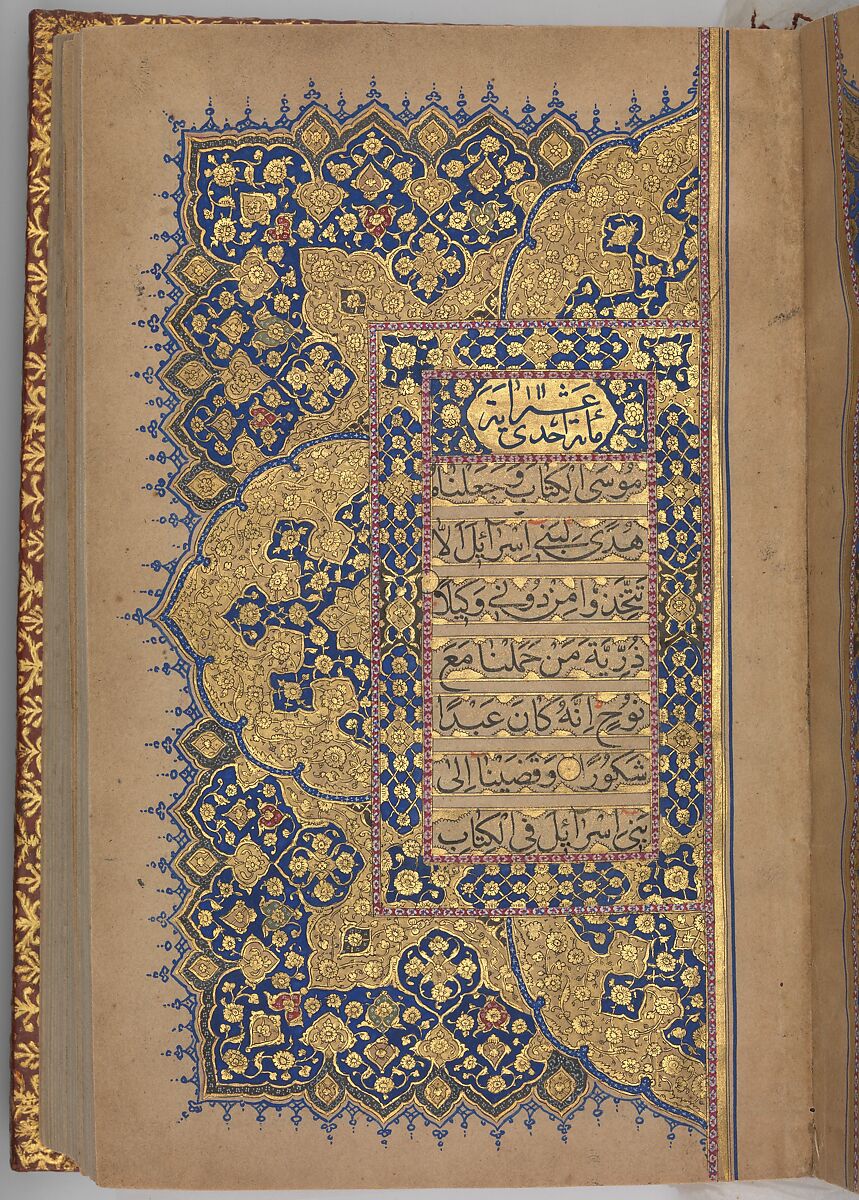 عشر اية
مائة احدى
مُوسَى الْكِتَابَ وَجَعَلْنَاهُ
هُدًى لِبَنِي اِسْرَآئِلَ اَلَّا
تَتَّخِذُوا مِنْ دُونِي وَكِيلًا
ذُرِّيَّةَ مَنْ حَمَلْنَا مَعَ
نُوحٍ اِنَّهُ كَانَ عَبْدًا
شَكُورًا وَقَضَيْنَا اِلٰى
بَنِي اِسْرَآئِلَ فِي الْكِتَابِ